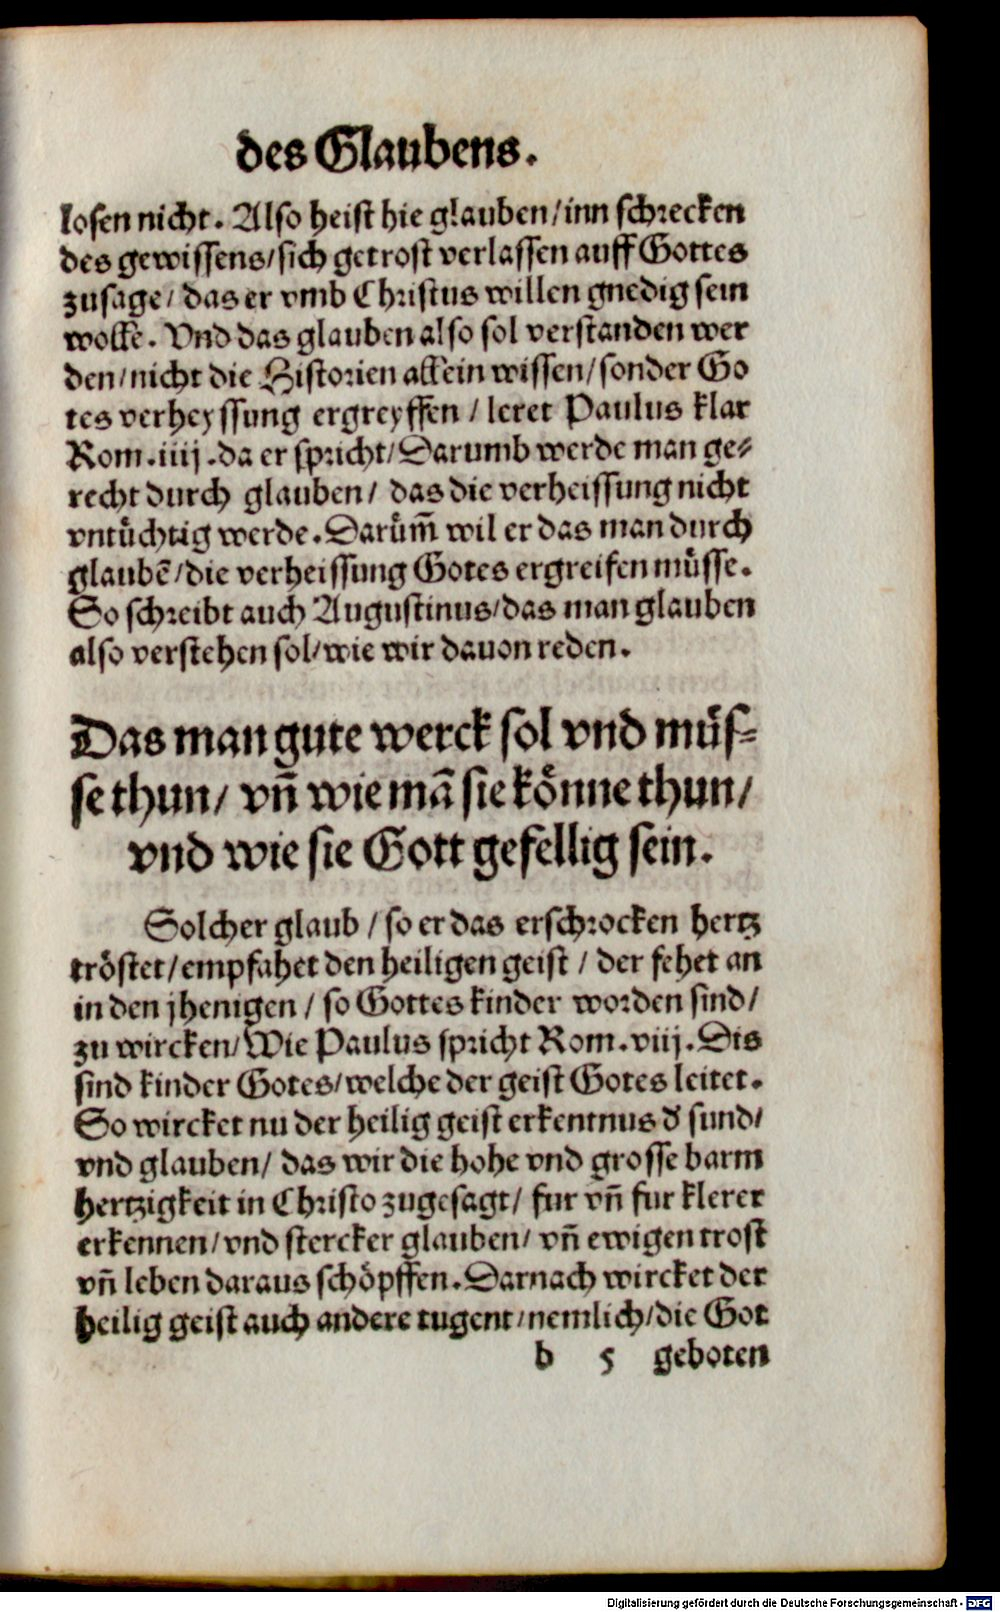 des Glaubens.
losen nicht. Also heist hie glauben/inn schrecken
des gewissens/sich getrost verlassen auff Gottes
zusage/ das er vmb Christus willen gnedig sein
wolle. Vnd das glauben also sol verstanden wer
den/nicht die Historien allein wissen/sonder Go
tes verheyssung ergreyffen / leret Paulus klar
Rom.iiij.da er spricht/Darumb werde man ge⸗
recht durch glauben/ das die verheissung nicht
vntüchtig werde.Darüm̃ wil er das man durch
glaubẽ/die verheissung Gotes ergreifen müsse.
So schreibt auch Augustinus/das man glauben
also verstehen sol/wie wir dauon reden.
Das man gute werck sol vnd müs⸗
se thun/ vñ wie mã sie könne thun/
vnd wie sie Gott gefellig sein.
Solcher glaub / so er das erschrocken hertz
tröstet/empfahet den heiligen geist / der fehet an
in den jhenigen / so Gottes kinder worden sind/
zu wircken/Wie Paulus spricht Rom.viij.Dis
sind kinder Gotes/welche der geist Gotes leitet.
So wircket nu der heilig geist erkentnus d̕ sund/
vnd glauben/ das wir die hohe vnd grosse barm
hertzigkeit in Christo zugesagt/ fur vñ fur klerer
erkennen/vnd stercker glauben/ vñ ewigen trost
vñ leben daraus schöpffen.Darnach wircket der
heilig geist auch andere tugent/nemlich/die Got
b 5 geboten
Digitalisierung gefördert durch die Deutsche Forschungsgemeinschaft - DFG